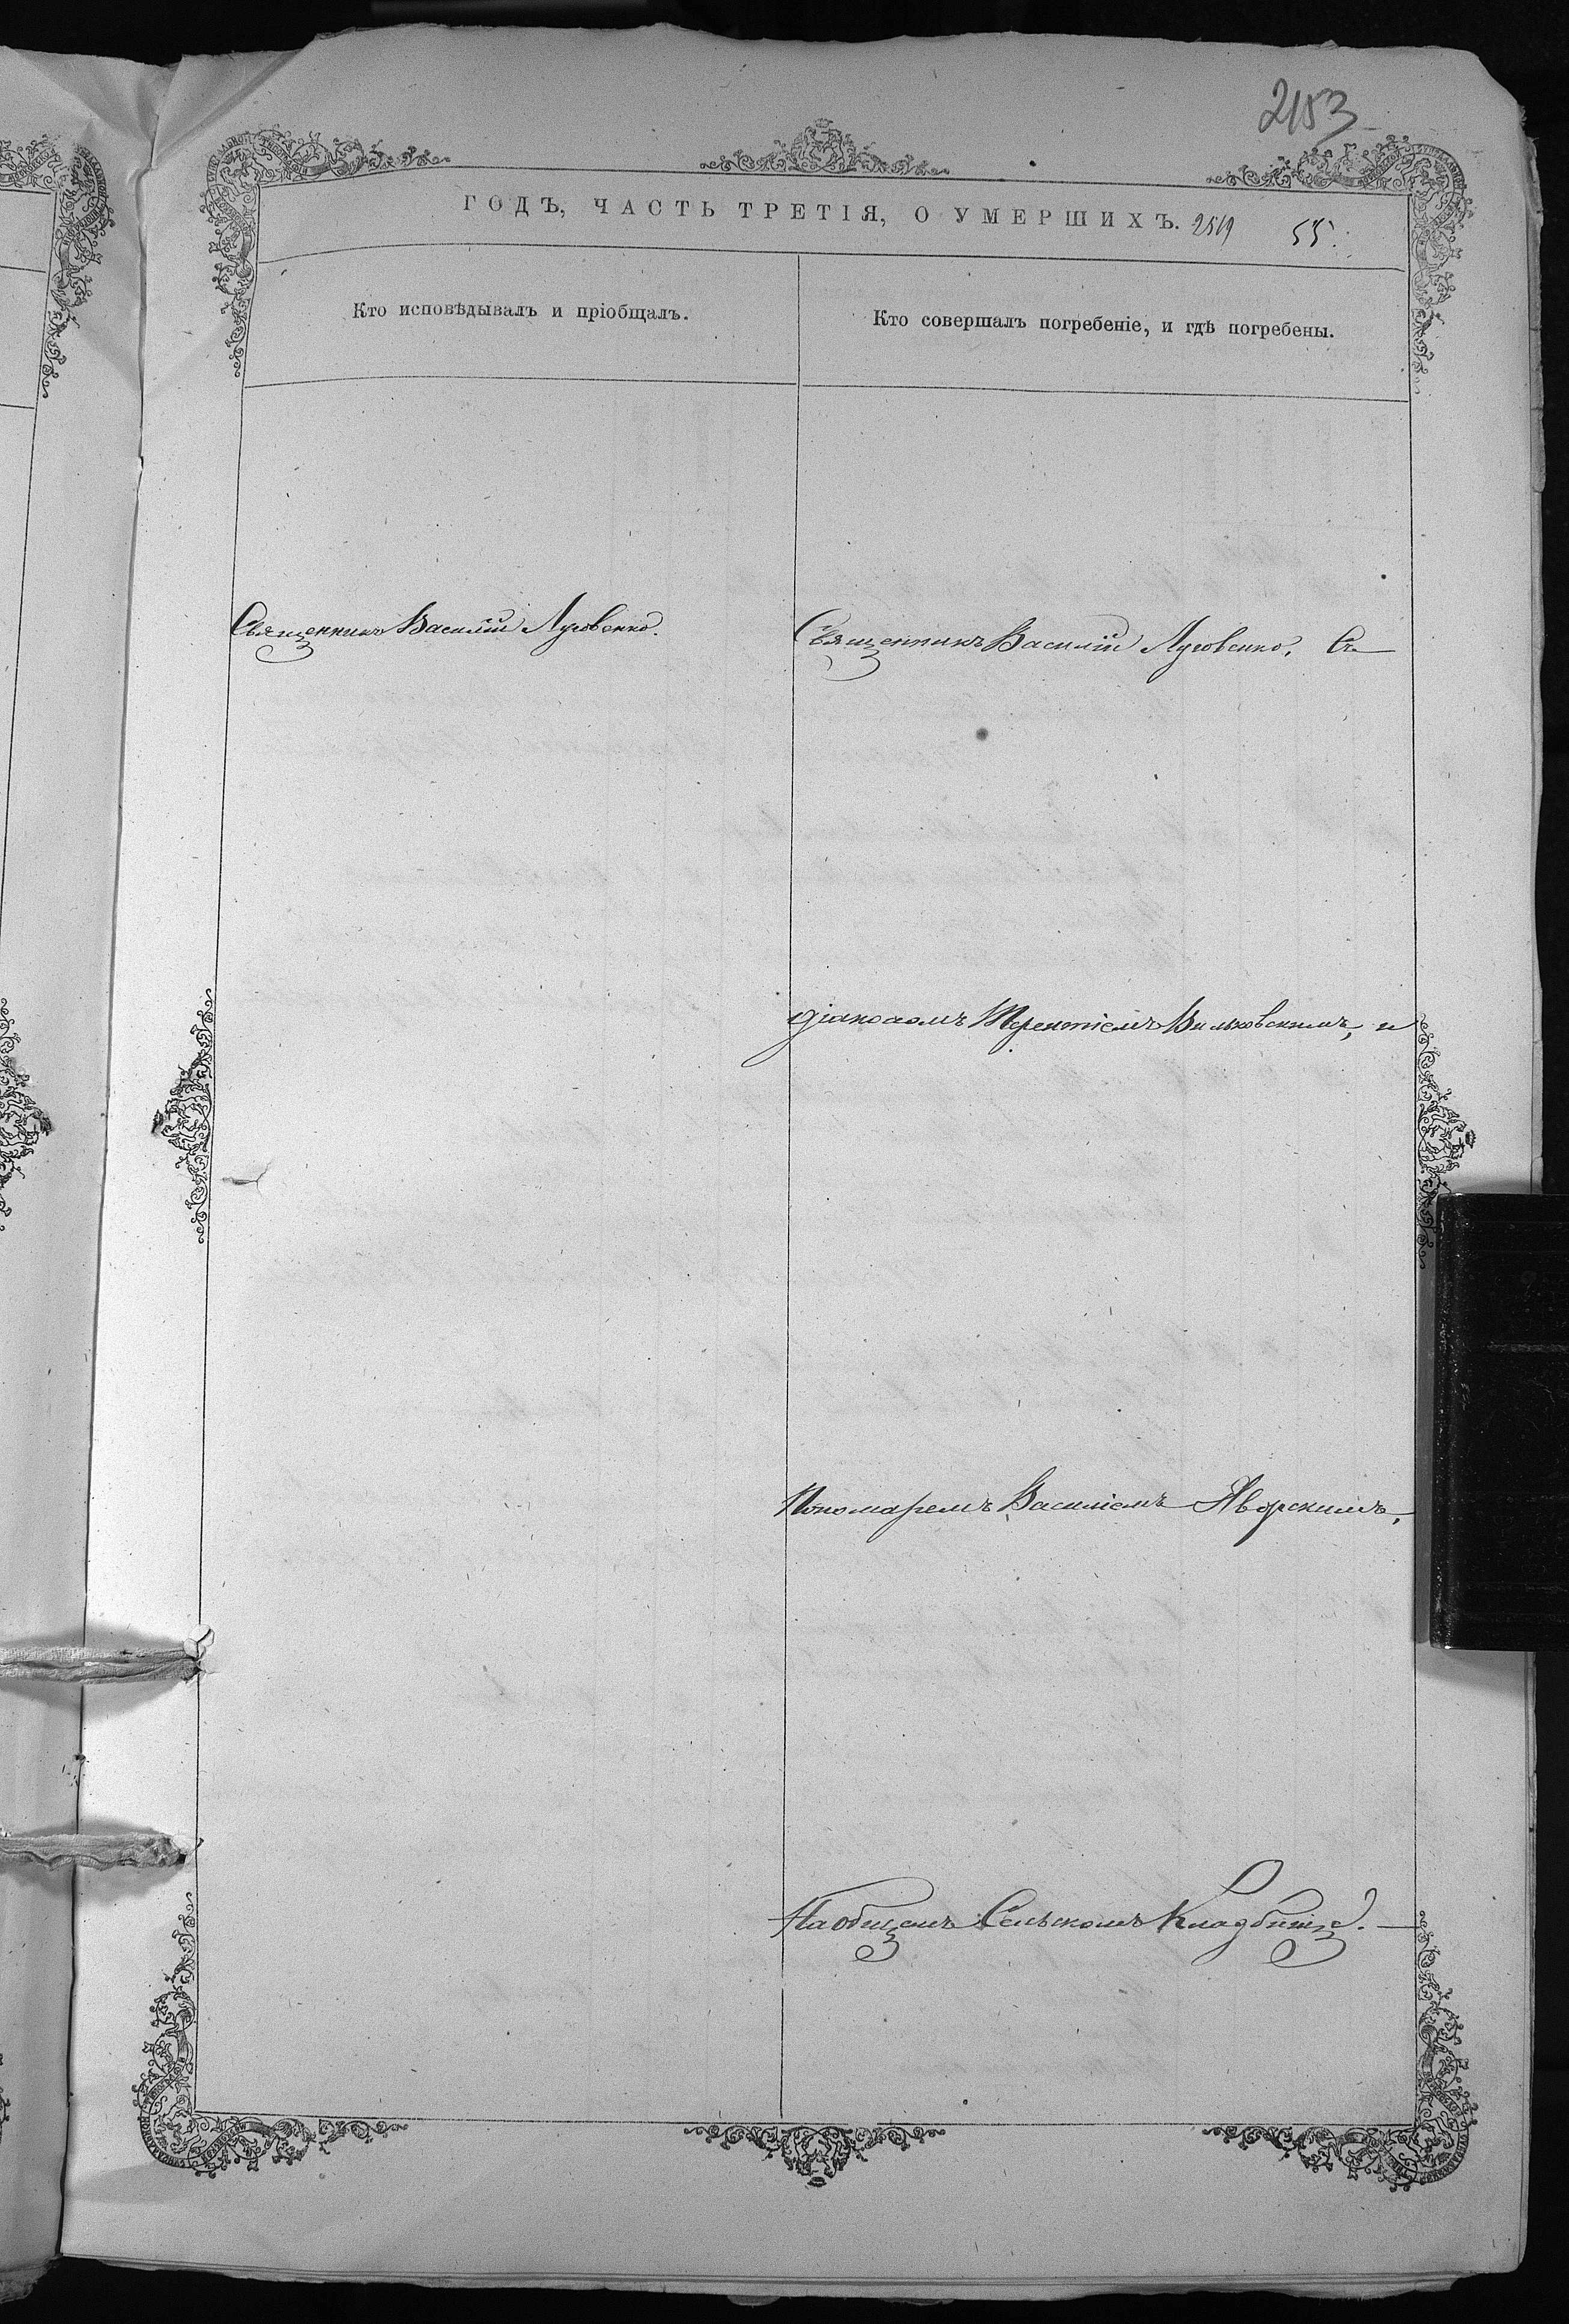 2153
ГОДЪ, ЧАСТЬ ТРЕТІЯ, О УМЕРШИХЪ. 2519 55.
Кто исповѣдывалъ и пріобщалъ.
Кто совершалъ погребеніе, и гдѣ погребены.
Священникъ Василій Луговенко.
Священникъ Василій Луговенко, Съ
діакономъ Терентіемъ Вильковскимъ, и
Пономаремъ Василіемъ Яворскимъ,
На общемъ Сельскомъ Кладбищѣ.